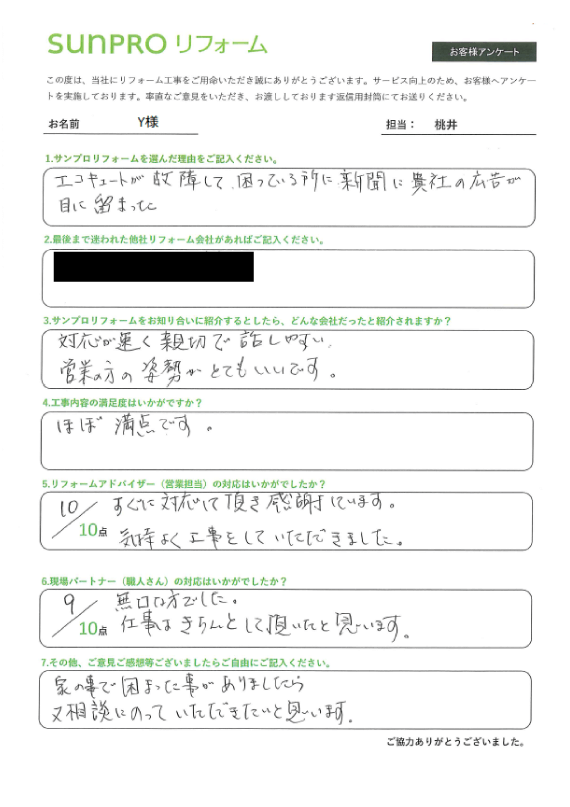 sunpro リフォーム
お客様アンケート
この度は、当社にリフォーム工事をご用命いただき誠にありがとうございます。サービス向上のため、お客様へアンケー
トを実施しております。率直なご意見をいただき、お渡ししております返信用封筒にてお送りください。
お名前 Y様 担当： 桃井
1.サンプロリフォームを選んだ理由をご記入ください。
エコキュートが故障して困っている所に新聞に貴社の広告が
目に留まった
2.最後まで迷われた他社リフォーム会社があればご記入ください。
3.サンプロリフォームをお知り合いに紹介するとしたら、どんな会社だったと紹介されますか？
対応が速く親切で話しやすい、
営業の方の姿勢がとてもいいです。
4.工事内容の満足度はいかがですか？
ほぼ満点です。
5.リフォームアドバイザー（営業担当）の対応はいかがでしたか？
10／10点 すぐに対応して頂き感謝しています。
気持よく工事をしていただきました。
6.現場パートナー（職人さん）の対応はいかがでしたか？
9／10点 無口な方でした。
仕事はきちんとして頂いたと思います。
7.その他、ご意見ご感想等ございましたらご自由にご記入ください。
家の事で困まった事がありましたら
又相談にのっていただきたいと思います。
ご協力ありがとうございました。